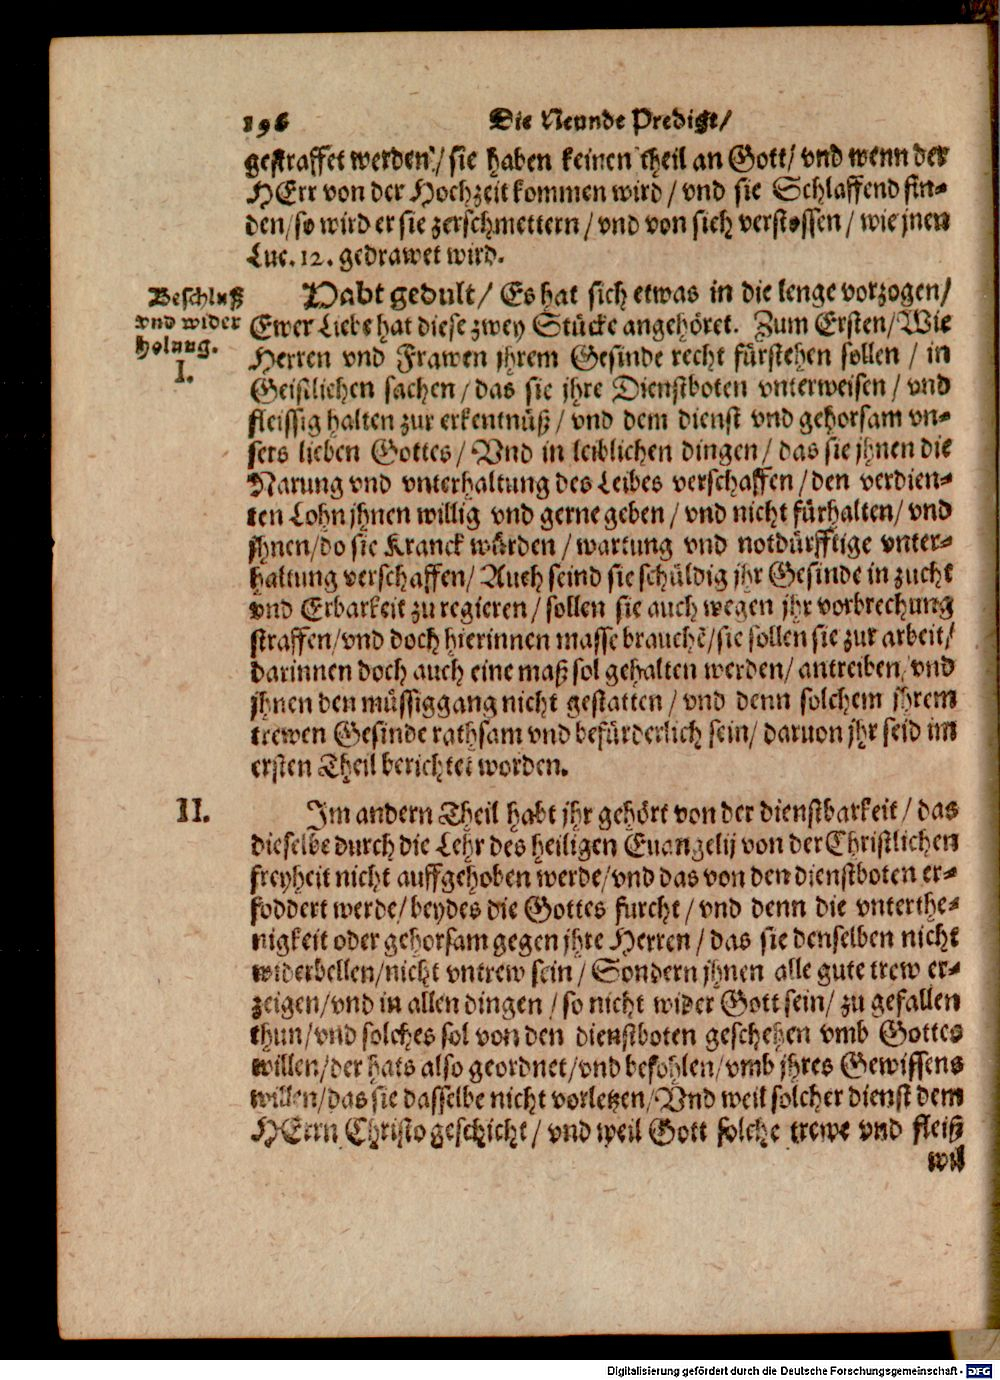 196 Die Neunde Predigt/
gestraffet werden/ sie haben keinen theil an Gott/ vnd wenn der
HErr von der Hochzeit kommen wird / vnd sie Schlaffend fin-
den/ so wird er sie zerschmettern / vnd von sich verstossen / wie jnen
Luc. 12. gedrawet wird.
Beschluß
vnd wider
holung.
I.
Habt gedult/ Es hat sich etwas in die lenge vorzogen/
Ewer Liebe hat diese zwey Stücke angehöret. Zum Ersten/ Wie
Herren vnd Frawen jhrem Gesinde recht fürstehen sollen / in
Geistlichen sachen / das sie jhre Dienstboten vnterweisen / vnd
fleissig halten zur erkentnüß / vnd dem dienst vnd gehorsam vn-
sers lieben Gottes / Vnd in leiblichen dingen / das sie jhnen die
Narung vnd vnterhaltung des Leibes verschaffen / den verdien-
ten Lohn jhnen willig vnd gerne geben / vnd nicht fürhalten/ vnd
jhnen/ do sie Kranck würden / wartung vnd notdürfftige vnter-
haltung verschaffen/ Auch seind sie schüldig jhr Gesinde in zucht
vnd Erbarkeit zu regieren / sollen sie auch wegen jhr vorbrechung
straffen/ vnd doch hierinnen masse brauchẽ/ sie sollen sie zur arbeit/
darinnen doch auch eine maß sol gehalten werden/ antreiben/ vnd
jhnen den müssiggang nicht gestatten / vnd denn solchem jhrem
trewen Gesinde rathsam vnd befürderlich sein/ daruon jhr seid im
ersten Theil berichtet worden.
II.
Im andern Theil habt jhr gehört von der dienstbarkeit / das
dieselbe durch die Lehr des heiligen Euangelij von der Christlichen
freyheit nicht auffgehoben werde/ vnd das von den dienstboten er-
foddert werde/ beydes die Gottes furcht / vnd denn die vnterthe-
nigkeit oder gehorsam gegen jhre Herren / das sie denselben nicht
widerbellen/ nicht vntrew sein / Sondern jhnen alle gute trew er-
zeigen/ vnd in allen dingen / so nicht wider Gott sein/ zu gefallen
thun/ vnd solches sol von den dienstboten geschehen vmb Gottes
willen/ der hats also geordnet/ vnd befohlen/ vmb jhres Gewissens
willen/ das sie dasselbe nicht vorletzen/ Vnd weil solcher dienst dem
HErrn Christo geschicht / vnd weil Gott solche trewe vnd fleiß
wil
Digitalisierung gefördert durch die Deutsche Forschungsgemeinschaft - DFG